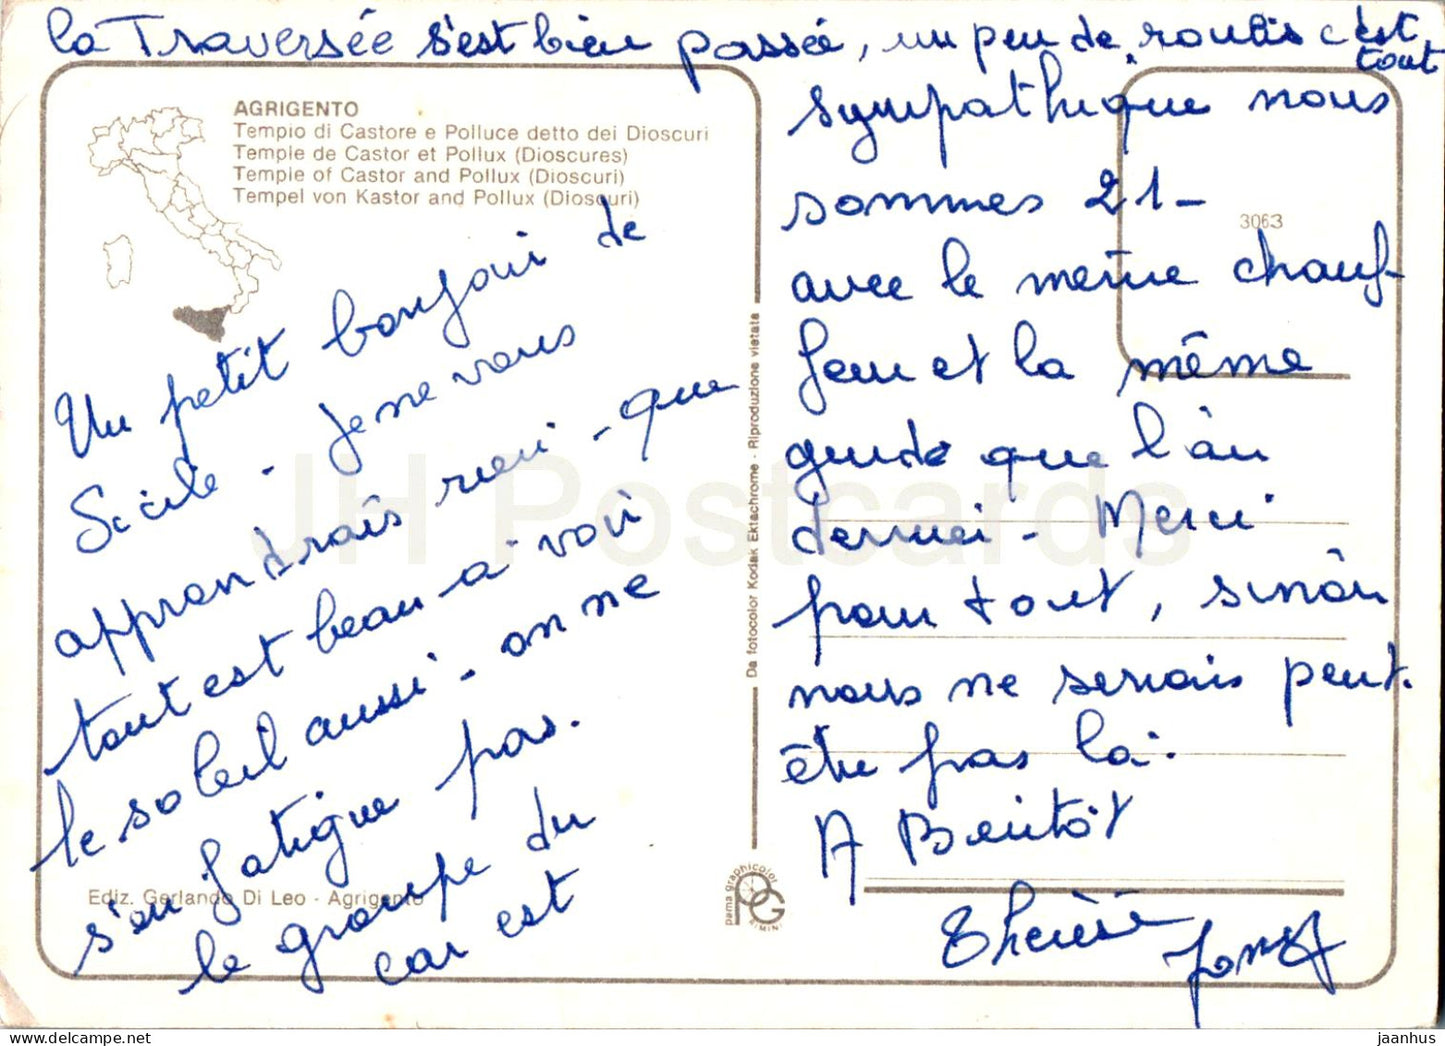 la Traversée s'est bien passée, un peu de roulis c'est
tout
AGRIGENTO
Tempio di Castore e Polluce detto dei Dioscuri
Temple de Castor et Pollux (Dioscures)
Temple of Castor and Pollux (Dioscuri)
Tempel von Kastor and Pollux (Dioscuri)
Un petit bonjour de
Sicile - je ne vous
apprendrais rien - que
tout est beau à voir
le soleil aussi - on ne
s'en fatigue pas.
le groupe du
car est
Ediz. Gerlando Di Leo - Agrigento
Da fotocolor Kodak Ektachrome - Riproduzione vietata
pama graphicolor
PG
RIMINI
3063
sympathique nous
sommes 21 -
avec le même chauf-
feur et la même
guide que l'an
dernier - Merci
pour tout, sinon
nous ne serions peut.
être pas là.
A Bientôt
Thérèse
JH Postcards
jaanhus